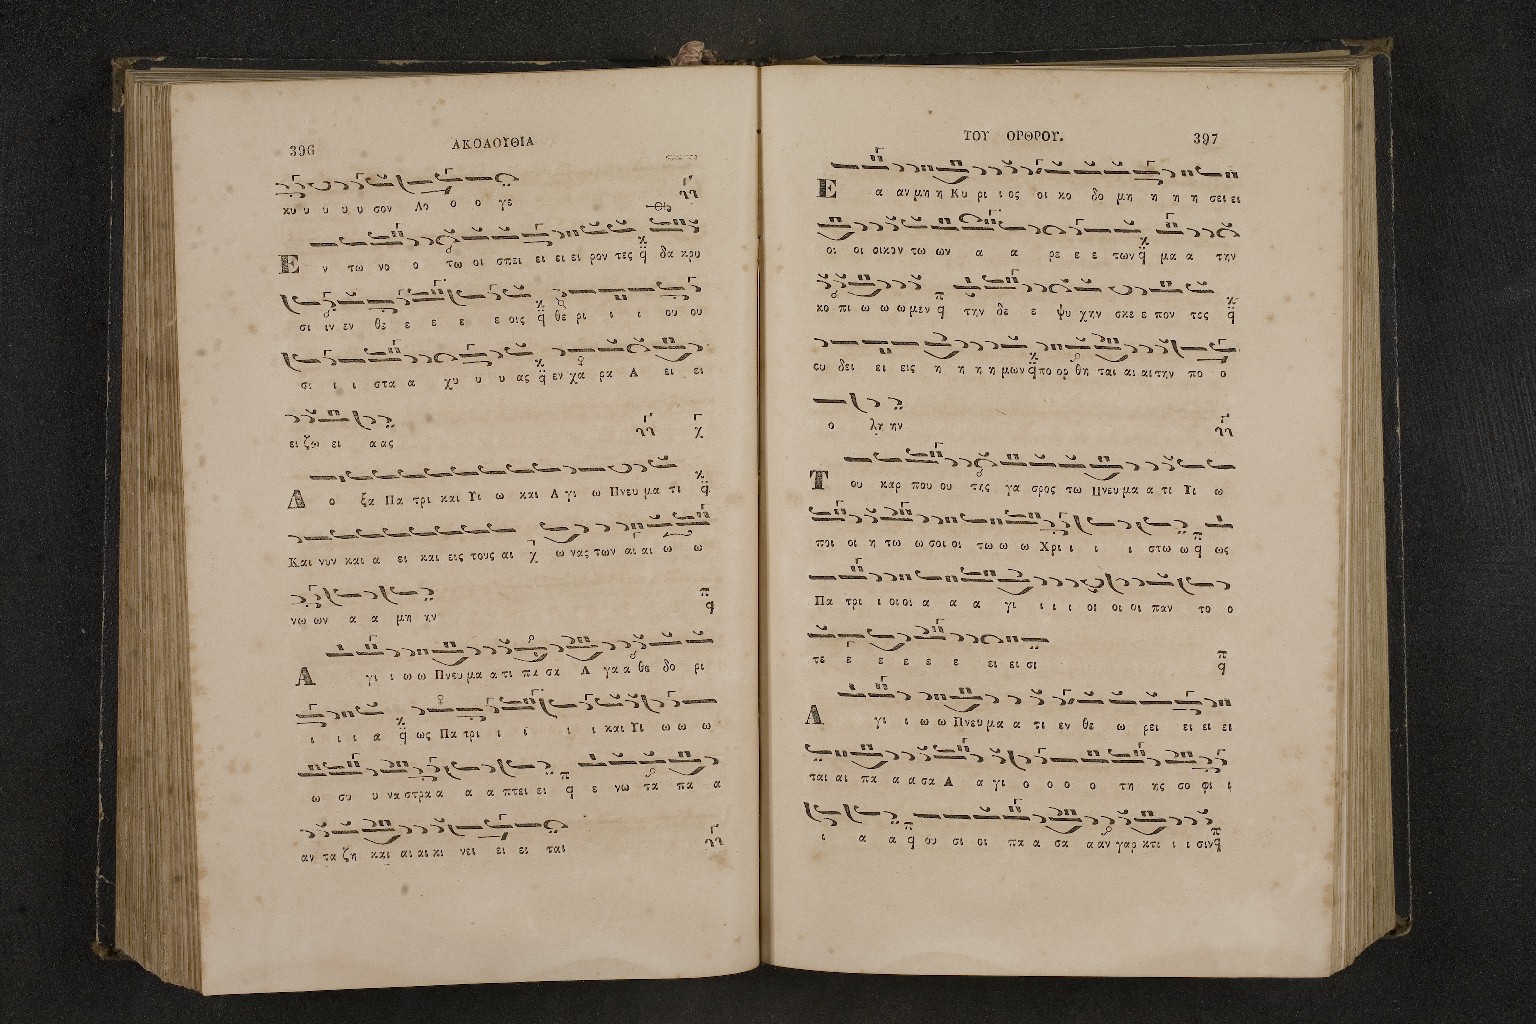 396 ΑΚΟΛΟΥΘΙΑ
κυ υ υ υ υ σον Λο ο ο γε
Ε ν τω νο ο τω οι σπει ει ει ει ρον τες δα κρυ
σι ιν εν θε ε ε ε ε οις θε ρι ι ι ου ου
σι ι ι στα α χυ υ υ ας εν χα ρα Α ει ει
ει ζω ει α ας
Δ ο ξα Πα τρι και Υι ω και Α γι ω Πνευ μα τι
Και νυν και α ει και εις τους αι ω νας των αι αι ω ω
νω ων α α μη ην
Α γι ι ω ω Πνευ μα α τι πα σα Α γα α θο δο ρι
ι ι ι α ως Πα τρι ι ι ι ι και Υι ω ω ω
ω συ υ να στρα α α α πτει ει ε νω τα πα α
αν τα ζη και αι αι κι νει ει ει ται
ΤΟΥ ΟΡΘΡΟΥ. 397
Ε α αν μη η Κυ ρι ι ος οι κο δο μη η η η σει ει
οι οι οικον τω ων α α ρε ε ε των μα α την
κο πι ω ω ω μεν την δε ε ψυ χην σκε ε πον τος
ου δει ει εις η η η η μων πο ορ θη ται αι αι την πο ο
ο λη ην
Τ ου καρ που ου της γα σρος τω Πνευ μα α τι Υι ω
ποι οι η τω ω σοι οι τω ω ω Χρι ι ι ι στω ω ως
Πα τρι ι οι οι α α α γι ι ι ι οι οι οι παν το ο
τε ε ε ε ε ε ει ει σι
Α γι ι ω ω Πνευ μα α τι εν θε ω ρει ει ει ει
ται αι πα α α σα Α α γι ο ο ο ο τη ης σο φι ι
ι α α ου σι οι πα α σα α αν γαρ κτι ι ι σιν